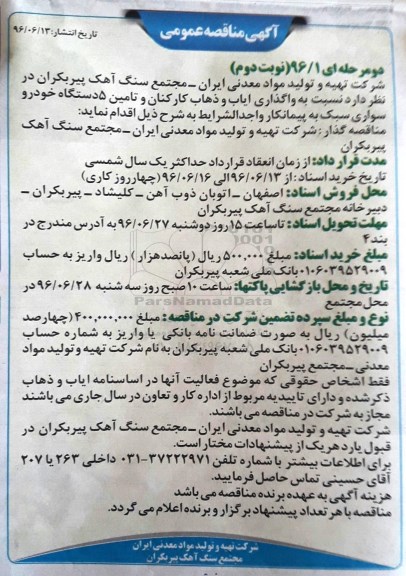 آگهی مناقصه عمومی
تاریخ انتشار: ۹۶/۰۶/۱۳
دو مرحله ای ۹۶/۱ (نوبت دوم)
شرکت تهیه و تولید مواد معدنی ایران – مجتمع سنگ آهک پیربکران در
نظر دارد نسبت به واگذاری ایاب و ذهاب کارکنان و تامین ۵ دستگاه خودرو
سواری سبک به پیمانکار واجدالشرایط به شرح ذیل اقدام نماید:
مناقصه گذار: شرکت تهیه و تولید مواد معدنی ایران – مجتمع سنگ آهک
پیربکران
مدت قرارداد: از زمان انعقاد قرارداد حداکثر یک سال شمسی
تاریخ خرید اسناد: از ۹۶/۰۶/۱۳ الی ۹۶/۰۶/۱۶ (چهار روز کاری)
محل فروش اسناد: اصفهان – اتوبان ذوب آهن – کلیشاد – پیربکران –
دبیرخانه مجتمع سنگ آهک پیربکران
مهلت تحویل اسناد: تا ساعت ۱۵ روز دوشنبه ۹۶/۰۶/۲۷ به آدرس مندرج در
بند ۴
مبلغ خرید اسناد: مبلغ ۵۰۰،۰۰۰ ریال (پانصد هزار) ریال واریز به حساب
۰۱۰۶۰۳۹۵۲۹۰۰۹ بانک ملی شعبه پیربکران
تاریخ و محل بازگشایی پاکتها: ساعت ۱۰ صبح روز سه شنبه ۹۶/۰۶/۲۸ در
محل مجتمع
ParsNamadData
نوع و مبلغ سپرده تضمین شرکت در مناقصه: مبلغ ۴۰۰,۰۰۰,۰۰۰ (چهارصد
میلیون) ریال به صورت ضمانت نامه بانکی یا واریز به شماره حساب
۰۱۰۶۰۳۹۵۲۹۰۰۹ بانک ملی شعبه پیربکران به نام شرکت تهیه و تولید مواد
معدنی – مجتمع پیربکران
فقط اشخاص حقوقی که موضوع فعالیت آنها در اساسنامه ایاب و ذهاب
ذکر شده و دارای تاییدیه مربوط از اداره کار و تعاون در سال جاری می باشند
مجاز به شرکت در مناقصه می باشند.
شرکت تهیه و تولید مواد معدنی ایران – مجتمع سنگ آهک پیربکران در
قبول یا رد هر یک از پیشنهادات مختار است.
برای اطلاعات بیشتر با شماره تلفن ۳۷۲۲۲۹۷۱-۰۳۱ داخلی ۲۶۳ یا ۲۰۷
آقای حسینی تماس حاصل فرمایید.
هزینه آگهی به عهده برنده مناقصه می باشد
مناقصه با هر تعداد پیشنهاد برگزار و برنده اعلام می گردد.
شرکت تهیه و تولید مواد معدنی ایران
مجتمع سنگ آهک پیربکران